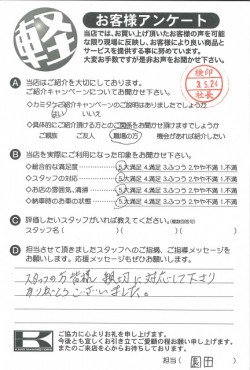 軽
お客様アンケート
当店では、お買い上げ頂いたお客様の声を可能
な限り現場に反映し、お客様により良い商品と
サービスを提供する事に努めています。
大変お手数ですが是非お声をお聞かせ下さい。
A 当店はご紹介を大切にしております。
ご紹介キャンペーンについてお聞かせ下さい。
検印
3.5.24
社長
◇カミタケご紹介キャンペーンの説明はありましたでしょうか
はい いいえ
◇具体的にご紹介頂ける方とのご関係をお聞かせ頂けますでしょうか
ご親族 ご友人 職場の方 機会があれば紹介したい
B 当店を実際にご利用になった印象をお聞かせ下さい。
◇総合的な満足度 5.大満足 4.満足 3.ふつう 2.やや不満 1.不満
◇スタッフの対応 5.大満足 4.満足 3.ふつう 2.やや不満 1.不満
◇お店の雰囲気、清掃 5.大満足 4.満足 3.ふつう 2.やや不満 1.不満
◇納車時のお車の状態 5.大満足 4.満足 3.ふつう 2.やや不満 1.不満
C 評価したいスタッフがいれば教えてください。
スタッフ名( )( )
D 担当させて頂きましたスタッフへのご指摘、ご指導メッセージを
お願いします。応援メッセージもぜひお願いします。
スタッフの方皆様 親切に対応して下さり
ありがとうございました。
K
ご協力に心よりお礼を申し上げます。
今後とも宜しくお引き立てご愛顧の程お願い申し上げます。
またのご来店を心からお待ちしております。
担当( 園田 )